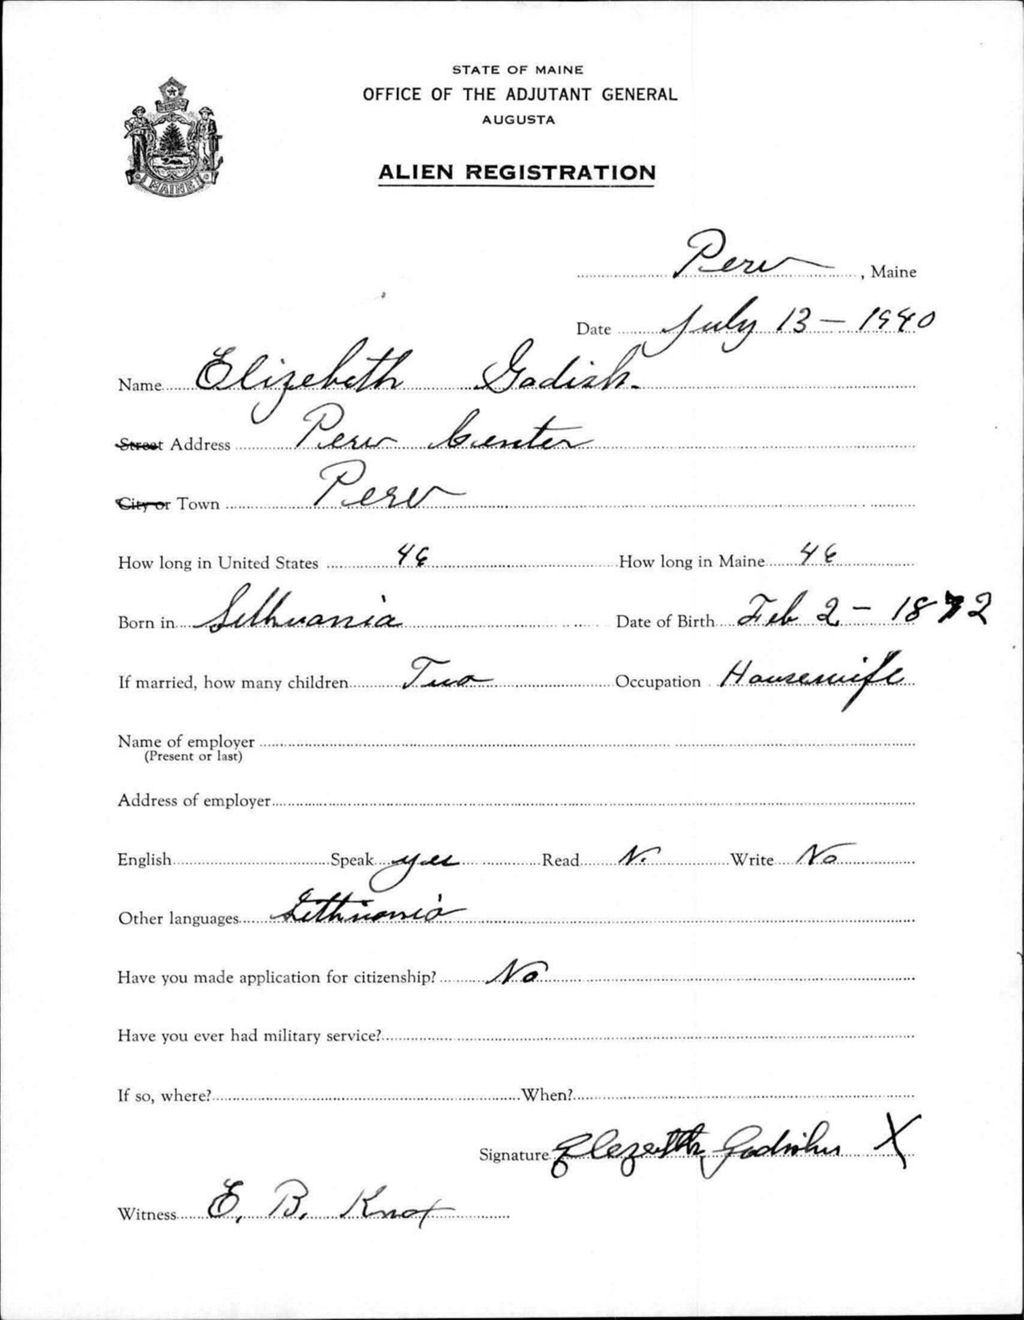 STATE OF MAINE
OFFICE OF THE ADJUTANT GENERAL
AUGUSTA
ALIEN REGISTRATION
MAINE
Peru, Maine
Date July 13 - 1940
Name Elizebeth Gadish.
Street Address Peru Center
City or Town Peru
How long in United States 46 How long in Maine 46
Born in Lithuania Date of Birth Feb 2 - 1872
If married, how many children Two Occupation Housewife
Name of employer
(Present or last)
Address of employer
English Speak yes Read No Write No
Other languages Lithuania
Have you made application for citizenship? No
Have you ever had military service?
If so, where? When?
Signature X
Witness E. B. Knox